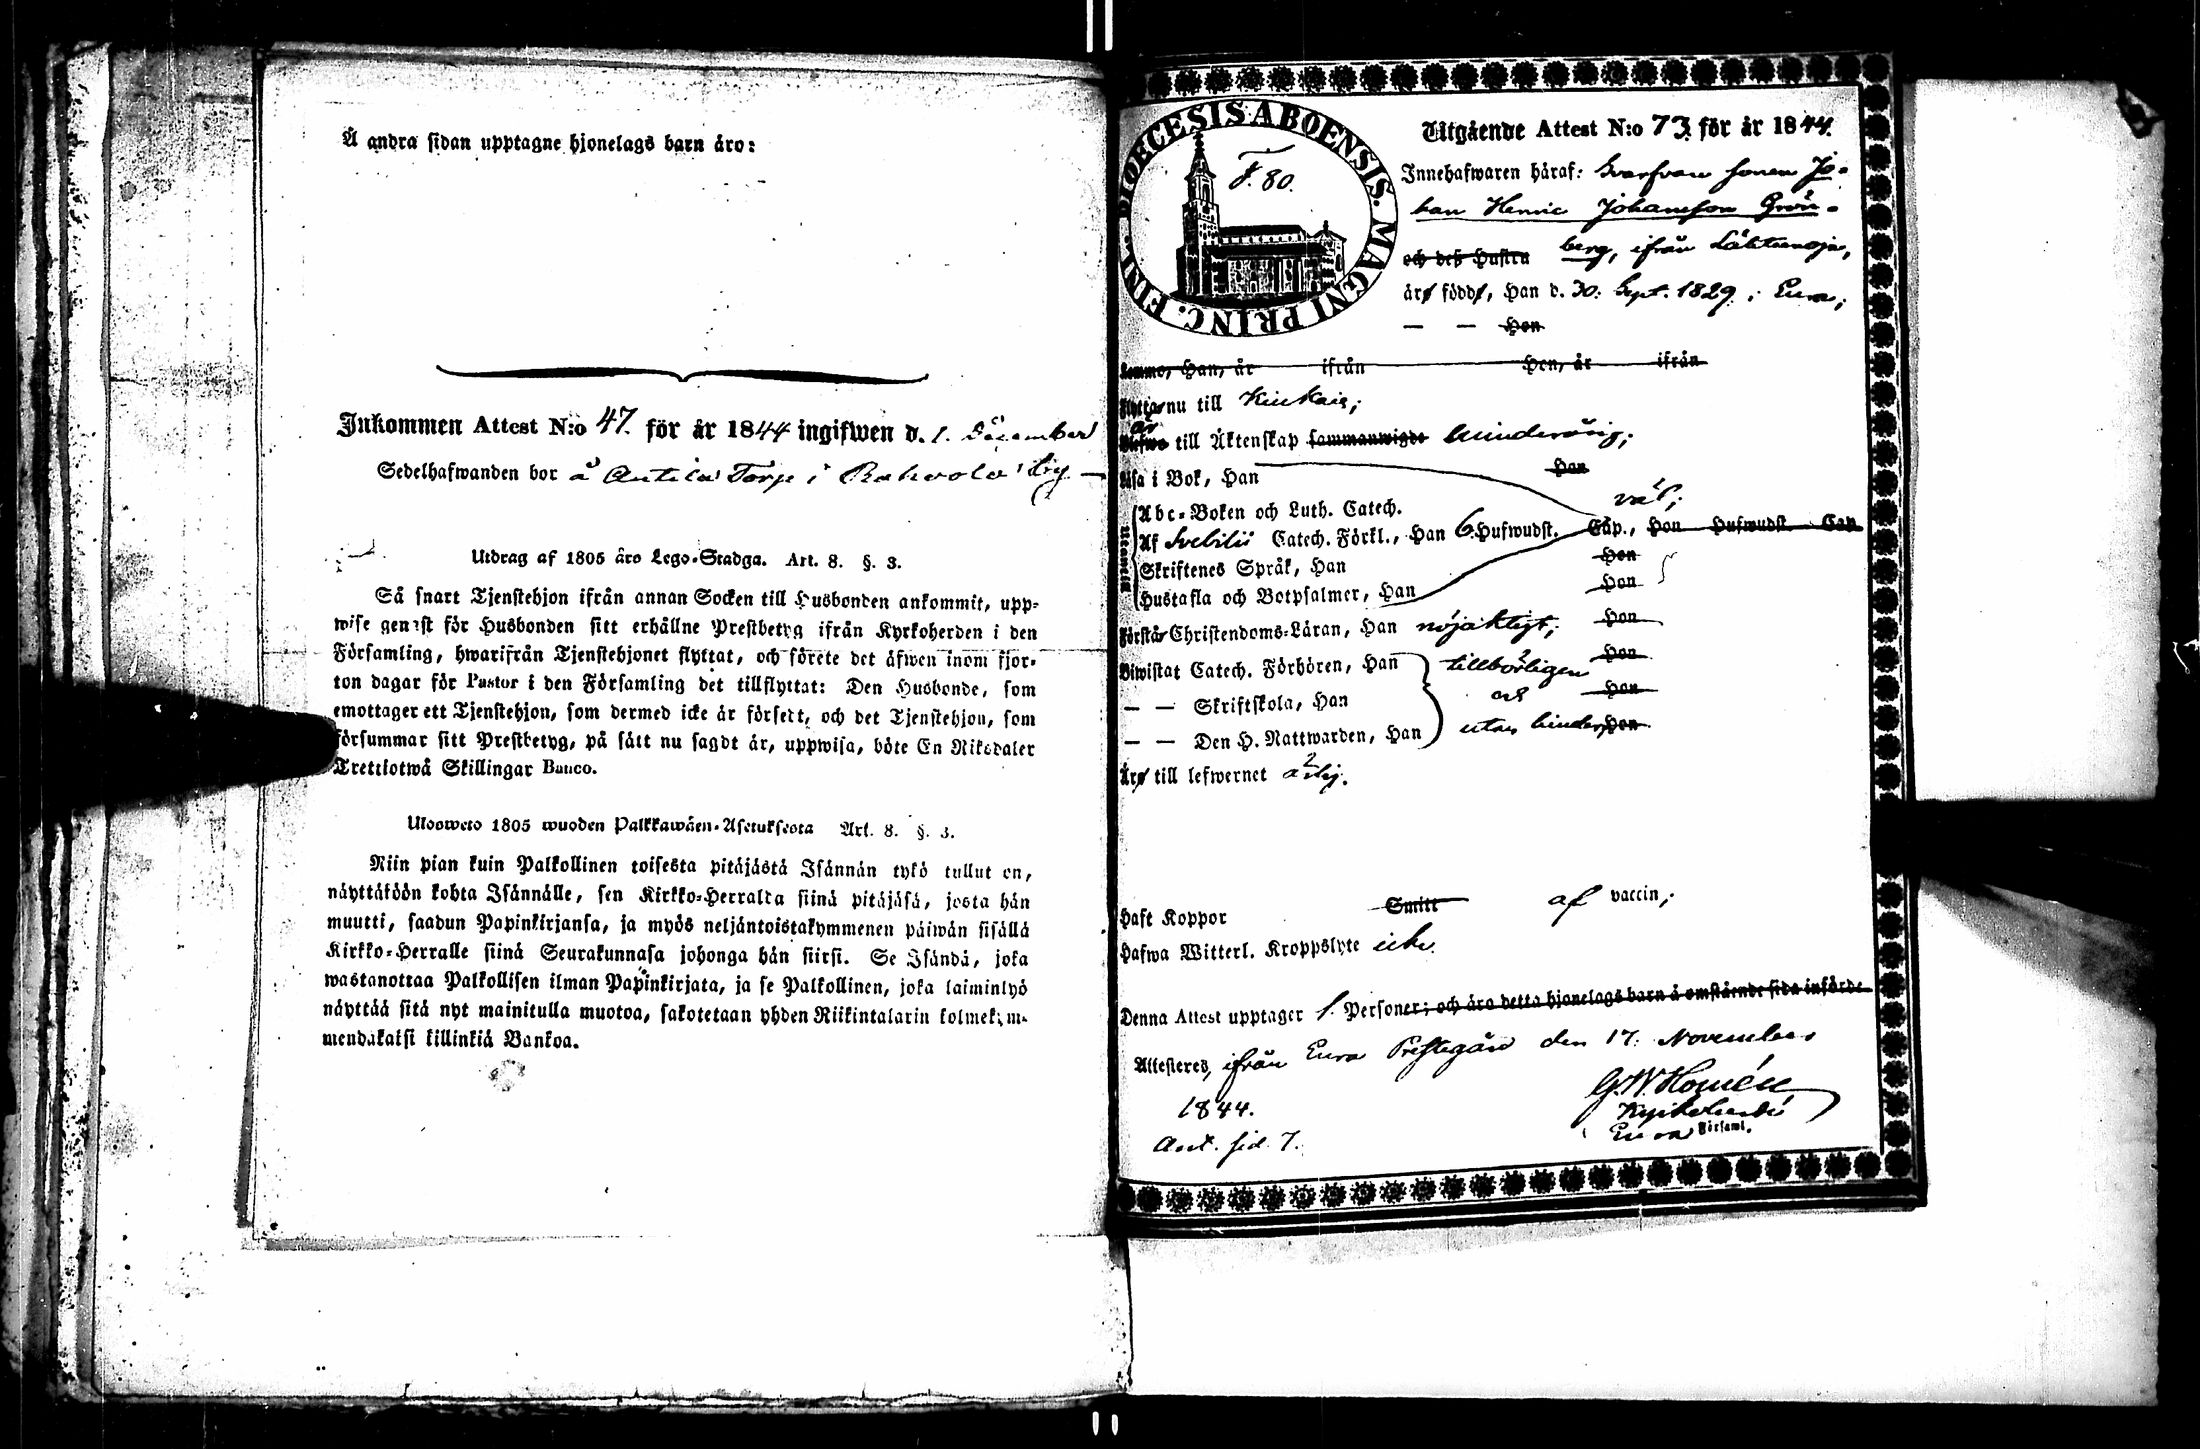 Å andra sidan upptagne hjonelags barn äro:
Inkommen Attest N:o 47. för år 1844 ingifwen d. 1. December
Sedelhafwanden bor å Antila Torp i
Utdrag af 1805 års Lego-Stadga. Art. 8. §. 3.
Så snart Tjenstehjon ifrån annan Socken till Husbonden ankommit, upp-
wise genast för Husbonden sitt erhållne Prestbetyg ifrån Kyrkoherden i den
Församling, hwarifrån Tjenstehjonet flyttat, och förete det äfwen inom fjor-
ton dagar för Pastor i den Församling det tillflyttat: Den Husbonde, som
emottager ett Tjenstehjon, som dermed icke är försedt, och det Tjenstehjon, som
försummar sitt Prestbetyg, på sätt nu sagdt är, uppwisa, böte En Riksdaler
Trettiotwå Skillingar Banco.
Uloswets 1805 wuoden Palkkawäen-Asetuksesta Art. 8. §. 3.
Niin pian kuin Palkollinen toisesta pitäjästä Isännän tykö tullut on,
näyttäköön kohta Isännälle, sen Kirkko-Herralta siinä pitäjäsä, josta hän
muutti, saadun Papinkirjansa, ja myös neljäntoistakymmenen päiwän sisällä
Kirkko-Herralle siinä Seurakunnasa johonga hän siirsi. Se Isändä, joka
wastanottaa Palkollisen ilman Papinkirjata, ja se Palkollinen, joka laiminlyö
näyttää sitä nyt mainitulla muotoa, sakotetaan yhden Riikintalarin kolmekym-
mendäkaksi killinkiä Bankoa.
DIOECESIS ABOENSIS. MAGNI PRINC. FINL.
F. 80.
Utgående Attest N:o 73. för år 1844.
Innehafwaren häraf: Svarfvare sonen Jo-
han Henric Johansson Grön-
och deß Hustru berg, ifrån Lähteenoja,
äro födde, Han d. 30. Sept. 1829 i Eura;
— — Hon
komme, Han, år ifrån Hon, år ifrån
Flyttar nu till Kiukais;
är
Blefwe till Äktenskap sammanwigde minderårig;
Läsa i Bok, Han Hon
väl;
Utantill
Abc-Boken och Luth. Catech.
Af Svebilii Catech. Förkl., Han 6. Hufwudst. Cap., Hon Hufwudst. Cap.
Skriftenes Språk, Han Hon
Hustafla och Botpsalmer, Han Hon
Förstår Christendoms-Läran, Han nöjaktigt; Hon
Biwistat Catech. Förhören, Han tillbörligen Hon
— — Skriftskola, Han och Hon
— — Den H. Nattwarden, Han utan hinder; Hon
Äro till lefwernet ärlig.
Haft Koppor Smitt af vaccin;
Hafwa Witterl. Kroppslyte icke.
Denna Attest upptager 1. Personer; och äro detta hjonelags barn å omstående sida införde.
Attesteres, ifrån Eura Prestegård den 17. November
1844. G. W. Homén
Kyrkoherde i
Ant. sid. 7. Eura Församl.